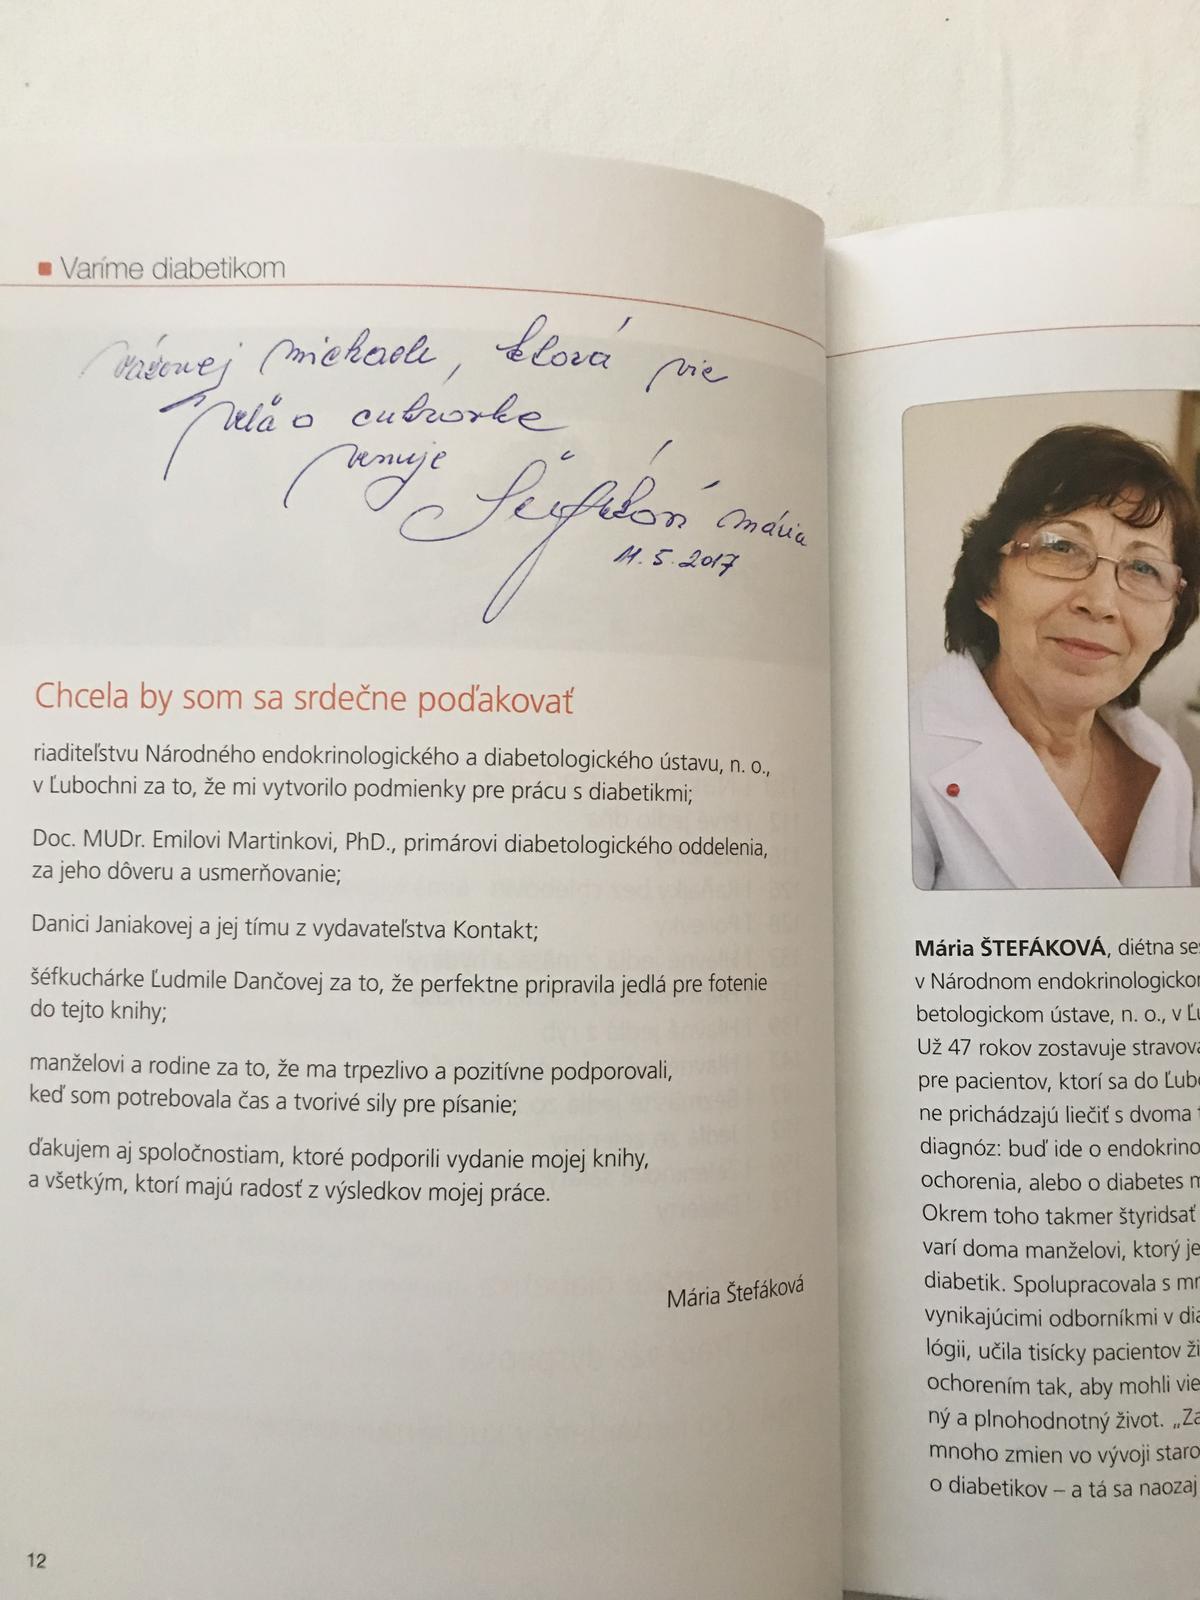 Varíme diabetikom
váženej Michaele, ktorá vie
veľa o cukrovke
venuje
Štefáková Mária
11.5.2017
Chcela by som sa srdečne poďakovať
riaditeľstvu Národného endokrinologického a diabetologického ústavu, n. o.,
v Ľubochni za to, že mi vytvorilo podmienky pre prácu s diabetikmi;
Doc. MUDr. Emilovi Martinkovi, PhD., primárovi diabetologického oddelenia,
za jeho dôveru a usmerňovanie;
Danici Janiakovej a jej tímu z vydavateľstva Kontakt;
šéfkuchárke Ľudmile Dančovej za to, že perfektne pripravila jedlá pre fotenie
do tejto knihy;
manželovi a rodine za to, že ma trpezlivo a pozitívne podporovali,
keď som potrebovala čas a tvorivé sily pre písanie;
ďakujem aj spoločnostiam, ktoré podporili vydanie mojej knihy,
a všetkým, ktorí majú radosť z výsledkov mojej práce.
Mária Štefáková
12
Mária ŠTEFÁKOVÁ, diétna ses
v Národnom endokrinologickom
betologickom ústave, n. o., v Ľu
Už 47 rokov zostavuje stravova
pre pacientov, ktorí sa do Ľubo
ne prichádzajú liečiť s dvoma t
diagnóz: buď ide o endokrino
ochorenia, alebo o diabetes m
Okrem toho takmer štyridsať
varí doma manželovi, ktorý je
diabetik. Spolupracovala s mn
vynikajúcimi odborníkmi v dia
lógii, učila tisícky pacientov ži
ochorením tak, aby mohli vie
ný a plnohodnotný život. „Za
mnoho zmien vo vývoji staro
o diabetikov – a tá sa naozaj